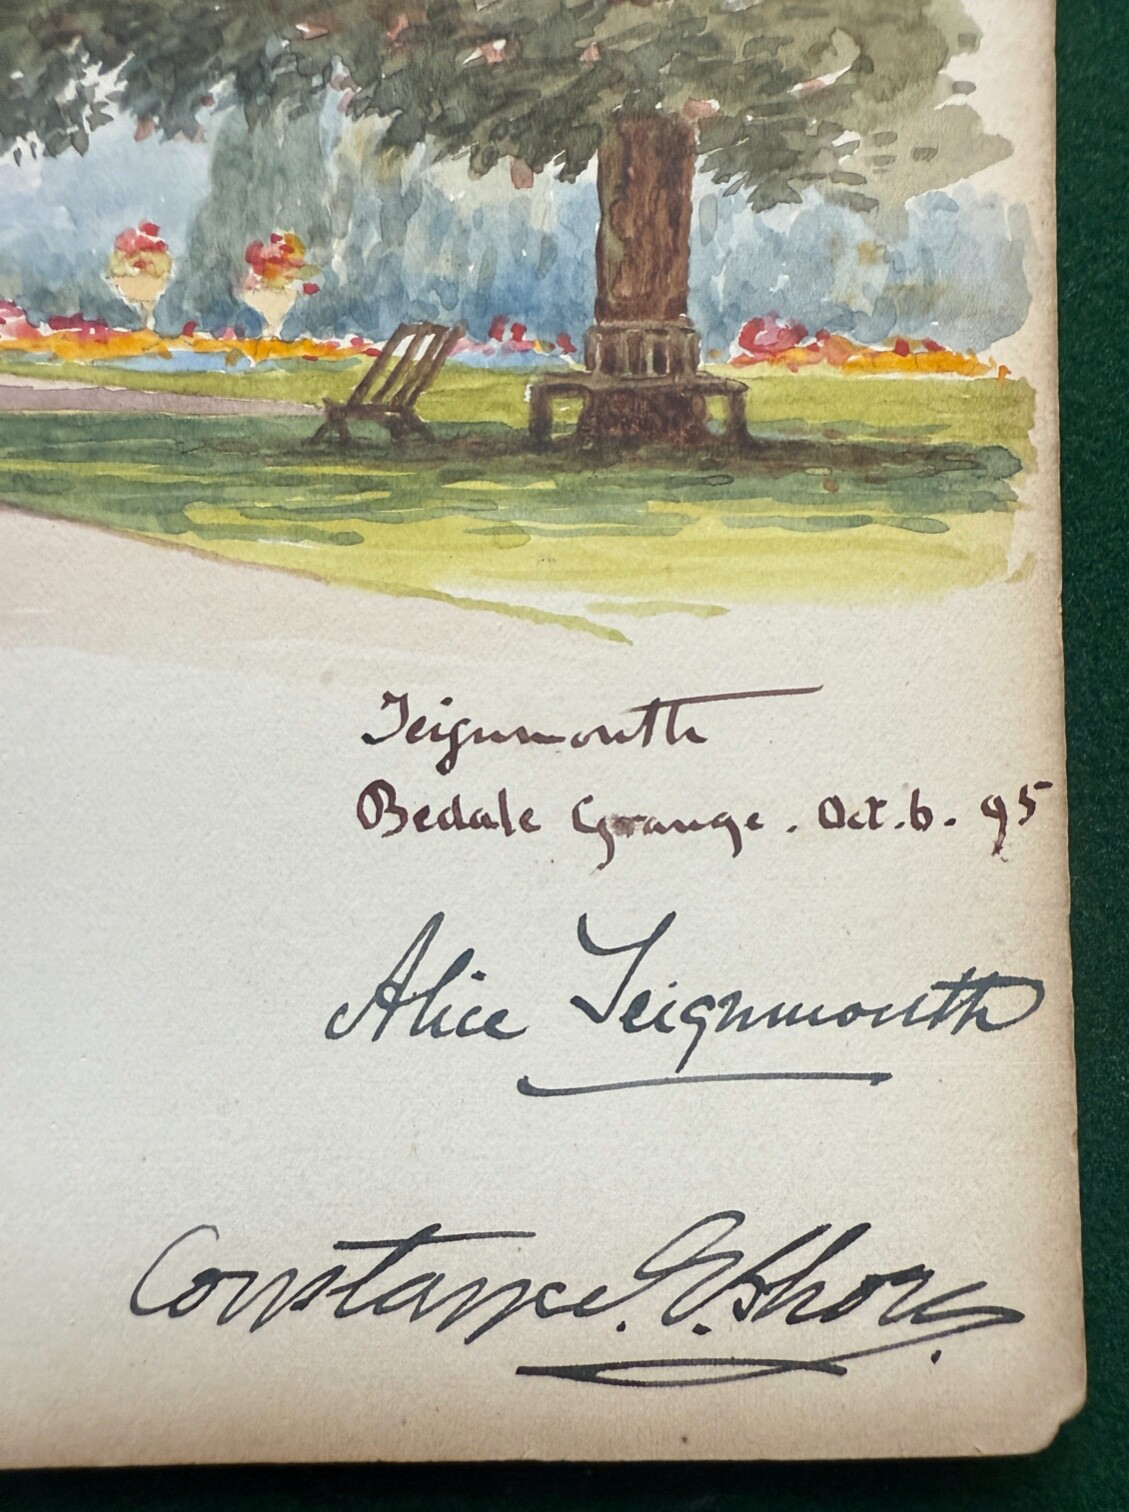 Teignmouth
Bedale Grange. Oct. 6. 95
Alice Teignmouth
Constance. G. Shore.